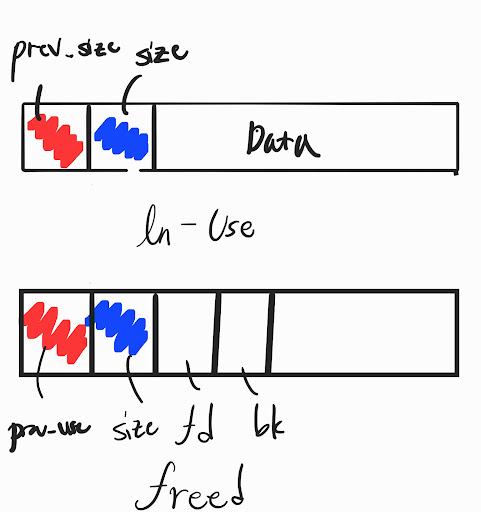 prev_size size
Data
In-Use
prev-use size fd bk
freed